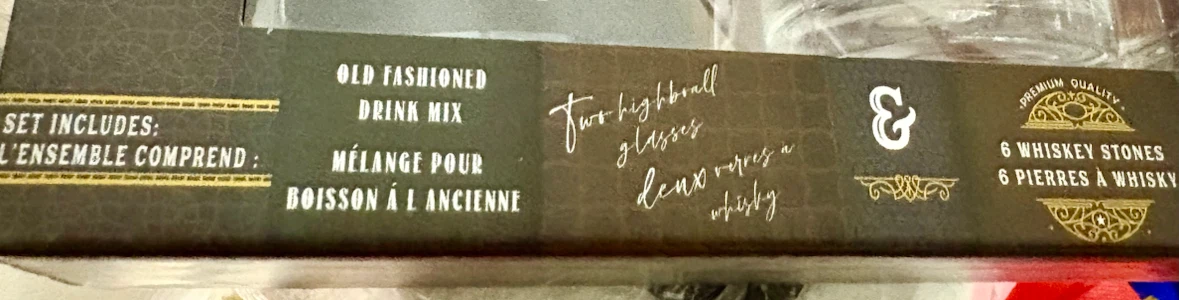 SET INCLUDES:
L'ENSEMBLE COMPREND :
OLD FASHIONED
DRINK MIX
MÉLANGE POUR
BOISSON Á L ANCIENNE
Two highball
glasses
deux verres a
whisky
&
PREMIUM QUALITY
6 WHISKEY STONES
6 PIERRES À WHISKY